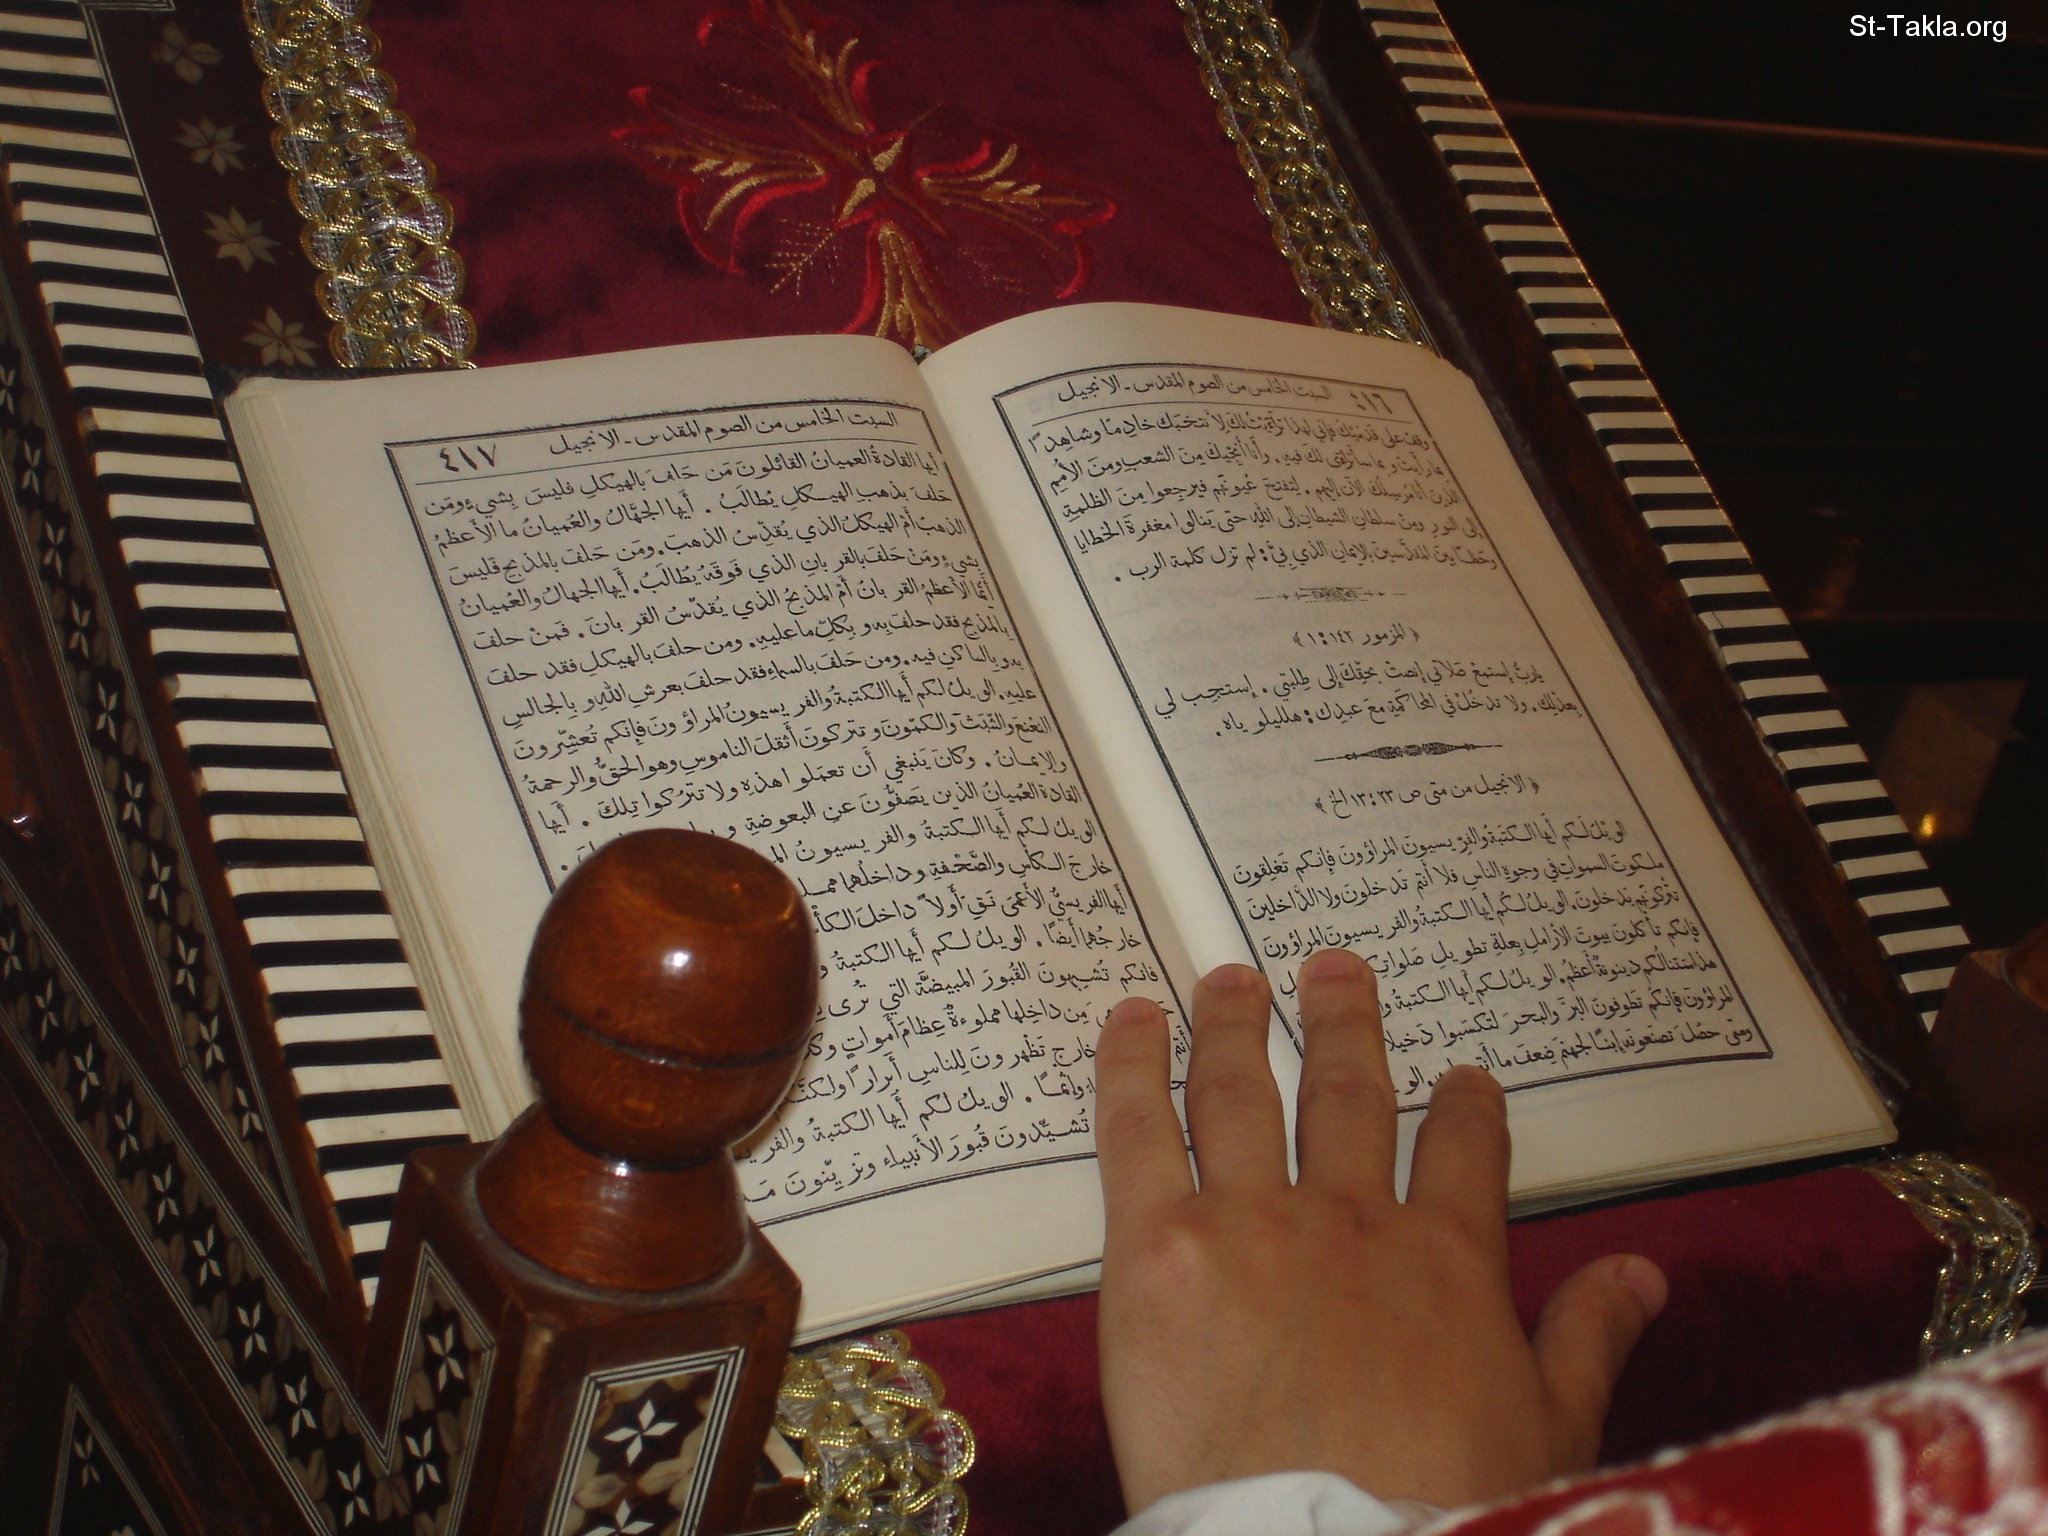 St-Takla.org
٤١٦ السبت الخامس من الصوم المقدس - الانجيل
وقِفْ على قدميك فإني لهذا تراءَيْتُ لكَ لأنتخبَك خادِمًا وشاهِدًا
بما رأيتَ وبما سأتراءى لك فيهِ . وأنا أُنجّيكَ مِنَ الشعبِ ومنَ الأُممِ
الذينَ أنا مُرسِلُكَ الآن إليهم . لتفتحَ عُيونَهم فيرجِعوا مِنَ الظلمةِ
إلى النورِ ومنْ سلطانِ الشيطانِ إلى اللهِ حتى يَنالوا مغفرةَ الخطايا
وحظًا بين المقدَّسينَ بالإيمانِ الذي بي : لم تزل كلمة الرب .
﴿ المزمور ١٤٢ : ١ ﴾
ياربُّ إستمِعْ صَلاتي إنصِتْ بحقِّكَ إلى طِلبتي . إستجِب لي
بعدلِك . ولا تدخُلْ في المحاكمةِ معَ عبدِك : هلليلوياه .
﴿ الانجيل من متى ص ٢٣ : ١٣ الخ ﴾
الويْلُ لَكم أيها الكتَبةُ والفرّيسيونَ المراؤونَ فإنكم تَغلِقونَ
ملكوتَ السمواتِ في وجوهِ الناسِ فلا أنتم تَدخلونَ ولا الدَّاخلينَ
تتركونَهم يَدخلونَ . الويلُ لكم أيها الكتبةُ والفريسيونَ المراؤونَ
فإنكم تأكلونَ بيوتَ الأراملِ بِعلةِ تطويلِ صَلواتِكم
هذا ستنالُكم دينونةٌ أعظمُ . الويلُ لكم أيها الكتبةُ
المراؤونَ فإنكم تَطوفونَ البرَّ والبحرَ لتكسَبوا دَخيلًا
ومتى حصَلَ تصنَعونَه إبنًا لجهنمَ ضِعفَ ما
٤١٧ السبت الخامس من الصوم المقدس - الانجيل
أيها القادةُ العميانُ القائلونَ مَن حَلفَ بالهيكلِ فليسَ بِشيءٍ ومَن
حَلفَ بذهبِ الهيكلِ يُطالَبُ . أيها الجهَّالُ والعُميانُ ما الأعظمُ
الذهبُ أم الهيكلُ الذي يُقدِّسُ الذهبَ . ومَن حَلفَ بالمذبحِ فَليسَ
بشيءٍ ومَنْ حَلفَ بالقربانِ الذي فَوقَهُ يُطالَبُ . أيها الجهالُ والعُميانُ
أيُّما الأعظمُ القربانُ أمْ المذبحُ الذي يُقدّسُ القربانَ . فَمنْ حلفَ
بالمذبحِ فقد حلفَ بِه وبكلِّ ما عليهِ . ومن حلفَ بالهيكلِ فقد حلفَ
به وبالساكنِ فيه . ومن حَلفَ بالسماءِ فقد حلفَ بعرشِ اللهِ وبالجالسِ
عليهِ . الويلُ لكم أيها الكتبةُ والفريسيونُ المراؤونَ فإنكم تُعشِّرونَ
النعنعَ والشّبثَ والكمّونَ وتتركونَ أثقلَ الناموسِ وهو الحقُّ والرحمةُ
والإيمانُ . وكانَ يَنبغي أن تعمَلوا هذهِ ولا تترُكوا تِلكَ . أيها
القادةُ العُميانُ الذين يَصَفُّونَ عنِ البعوضةِ
الويلُ لكم أيها الكتبةُ والفريسيونُ
خارجَ الكاسِ والصَّحْفةِ وداخلُهما
أيها الفريسيُّ الأعمَى نَقِّ أولاً داخلَ
خارجُهما أيضًا . الويلُ لكم أيها الكتبةُ
فانكم تُشبِهونَ القُبورَ المبيضَّةَ التي تُرى
مِن داخِلها مملوءةٌ عِظامَ أمواتٍ
خارجٍ تَظهرونَ لِلناسِ أبرارًا ولكنَّكم
وإثمًا . الويلُ لكم أيها الكتبةُ
تُشيِّدونَ قُبورَ الأنبياء وتزيّنونَ